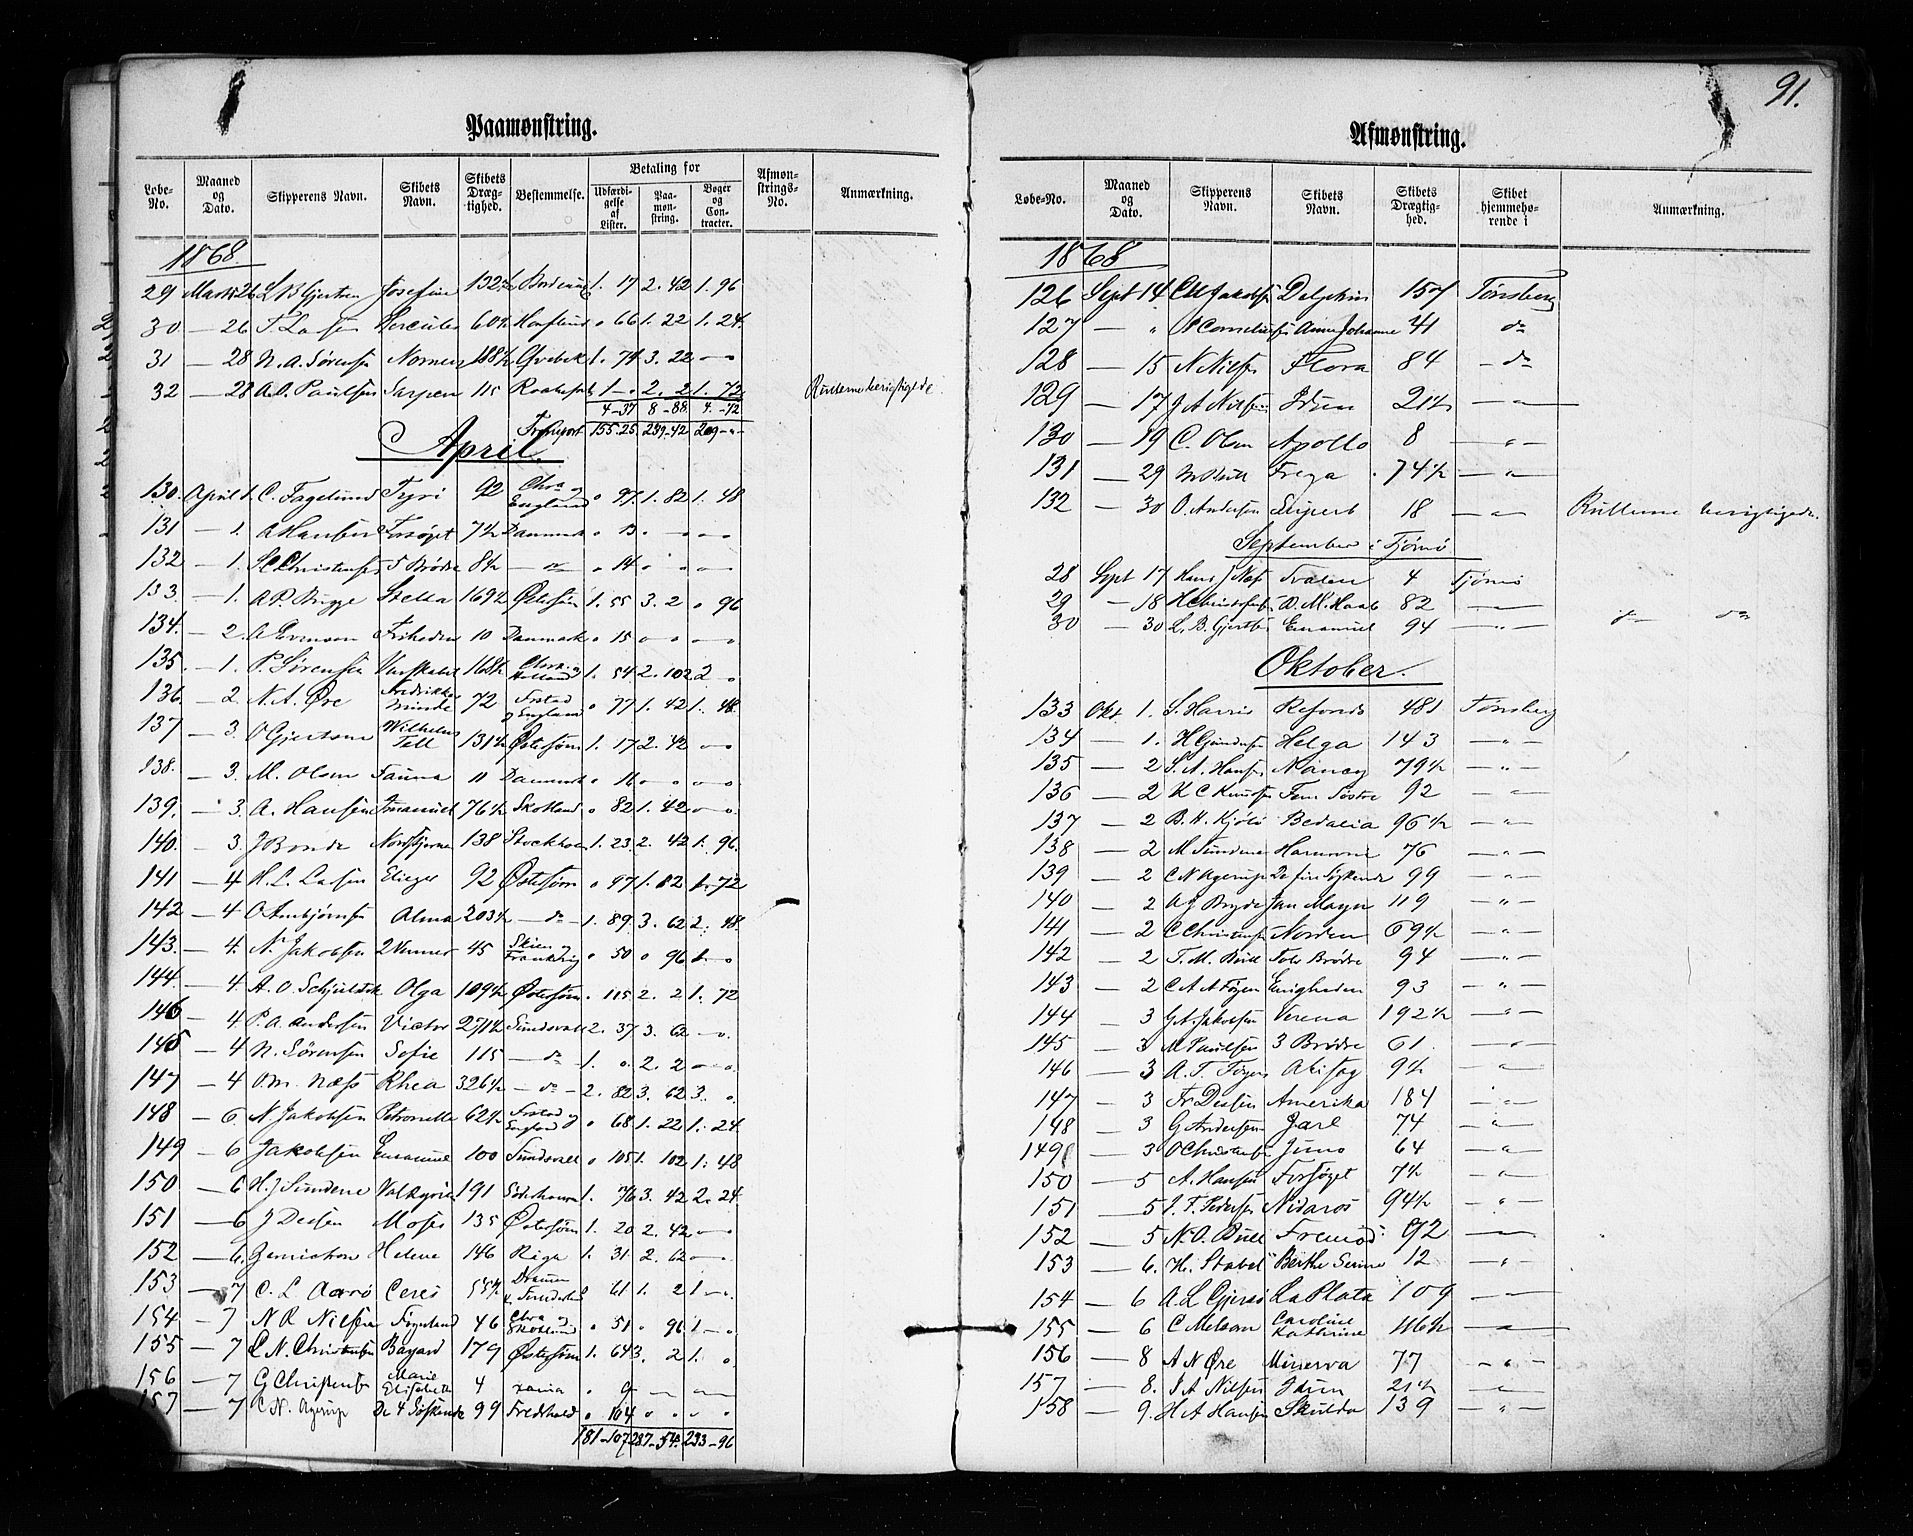 91.
Paamønstring.
Løbe-No. Maaned og Dato. Skipperens Navn. Skibets Navn. Skibets Drægtighed. Bestemmelse. Betaling for Udfærdigelse af Lister. Paamønstring. Bøger og Contracter. Afmønstrings-No. Anmærkning.
1868.
29 Marts 26 L B Gjertsen Josefine 132½ 1. 17 2. 42 1. 96
30 — 26 Larsen Hercules 60½ " 66 1. 22 1. 24
31 — 28 N. A. Sørensen 1. 74 3. 22 — "
32 — 28 A. O. Paulsen Sarpen 115 1 — " 2. 2 1. 72 Rullerne berigtigede
4-37 8-88 4-72
Transport 155.25 239-42 209-"-
April.
130. April 1. C. Fagelund Tyri 92 Chra og England " 97. 1. 82 1. 48
131 — 1. A Hansen Forsøget 7½ Danmark " 13 " — " — "
132 — 1. Christensen 5 Brødre 8½ — " — " 14 " " — "
133. — 1. A. P. Brygge Stella 169½ Østersøen 1. 55 3. 2 " 96
134. — 2. A Evensen Friheden 10 Danmark " 15 " " — "
135. — 1. P. Sørensen 168½ Chra. og Holland 1. 54 2. 102 2 "
136. — 2 N. A. Øre Fredrikke Minde 72 Frstad og England " 77 1. 42 1. 48.
137 — 3. O Gjertsen Wilhelm Tell 131½ Østersøen 1. 17 2. 42 " — "
138. — 3. M. Olsen Fauna 11 Danmark " 16 " " " — "
139. — 3. A. Hansen Imanuel 76½ Skotland " 82 1. 42 " — "
140. — 3 J Bonde Nordstjerne 138 Stockholm 1. 23 2. 42 1. 96.
141 — 4 H. L. Larsen Elieser 92 Østersøen " 97 1. 82 1. 72
142 — 4 O Arnbjørnsen Alma 203½ — do — 1. 89. 3. 62 2. 48.
143. — 4. N. Jakobsen 2 Venner 45 Skien og Frankrig " 50 " 96 1. — "
144. — 4. A. O. Schjuldsk Olga 109½ Østersøen . 115 2. 2 1. 72
146 — 4. P. A. Andersen Victor 271½ Sundsvall 2. 37 3. 62 — "
145 — 4 N. Sørensen Sofie 115 — do — 1. " 2. 2 " — "
147 — 4 O. M. Næss Rhea 326½ — do — 2. 82 3. 62 3. "
148 — 6 N Jakobsen Petronelle 62½ Frstad og England " 68 1. 22 1. 24.
149 — 6 Jakobsen Emanuel 100 Sundsvall " 105 1. 102 1. 48
150 — 6 H. J Sundene Valkyrie 191 1. 76 3. 42 2. 24.
151 — 6 J Dessen Moses 135 Østersøen 1. 20 2. 42 — "
152 — 6. Helene 146 Riga 1. 31 2. 62 — "
153 — 7 O. L Aarø Ceres 55½ " 61 1. 2 1 — "
154 — 7 N R Nilsen Føyenland 46 Chra og Skotland " 51 " 96 1 — "
155 — 7 L. N. Christensen Bayard 179 Østersøen 1. 64 3. 2 1. "
156 — 7 G Christensen Marie Elisabeth 4 " 9 — —
157 — 7 C. N. Agerup De 4 Søskende 99 Fredshald " 104 " " "
181-107 287-54. 233-96
Afmønstring.
Løbe-No. Maaned og Dato. Skipperens Navn. Skibets Navn. Skibets Drægtighed. Skibet hjemmehørende i Anmærkning.
1868
126 Sept 14 C M Jakobsen Delphin 157 Tønsberg
127 — " A Corneliussen Anne Johanne 41 do
128 — 15 N Nilsen Flora 84 — do
129 — 17 J A Nilsen Idun 21½ — " —
130 — 19 C. Olsen Apollo 8 — " —
131 — 29 M Bull Freya 74½ — " —
132 — 30 O. Andersen Leipert 18 — " — Rullerne berigtigede.
September i Tjømø
28 Sept 17 Hans J Næss Svalen 4 Tjømø
29 — 18 H Christofersen D. M. Haab 82 — " — do
30 — 30 L. B. Gjertsen Emanuel 94 — " —
Oktober.
133 Okt. 1. S. Harris Reforeds 481 Tønsberg
134 — 1. H Gundersen Helga 143 — " —
135 — 2 S. A. Hansen Nancy 79½ — " —
136 — 2 K C Knudsen Fem Søstre 92 — " —
137 — 2 B. H. Kjøle Bedalia 96½ — " —
138 — 2 M Sundene Harmonie 76 — " —
139 — 2 C N Agerup De fire Søskende 99 — " —
140 — 2 A J Bryde Jan Mayn 119 — " —
141 — 2 C Christensen Norden 69½ — " —
142 — 2 T. M. Bull Tolv Brødre 94 — " —
143 — 2 C A A Føyen Enigheden 93 — " —
144 — 3 G A. Jakobsen Verena 192½ — " —
145 — 3 M Paulsen 3 Brødre 61. — " —
146 — 3 A. T. Føyen Abisag 9½ — " —
147 — 3 Fr Dessen Amerika 184 — " —
148 — 3 G Andersen Jarl 74 — " —
149 — 3 O Christensen Juno 64 — " —
150 — 5 A. Hansen Forsøget 7½ — " —
151 — 5 J. F. Pedersen Nidaros 94½ — " —
152 — 5 N. O. Bull Fremad 92 — " —
153 — 6. H. Stabel Berthe Serine 12 — " —
154 — 6 A. L Gjersø La Plata 109 — " —
155 — 6 C Melsom Caroline Kathrine 116½ — " —
156 — 8 A N Øre Minerva 77 — " —
157 — 8. J A Nilsen Idun 21½ — " —
158 — 9. H A Hansen Skulda 139 — " —